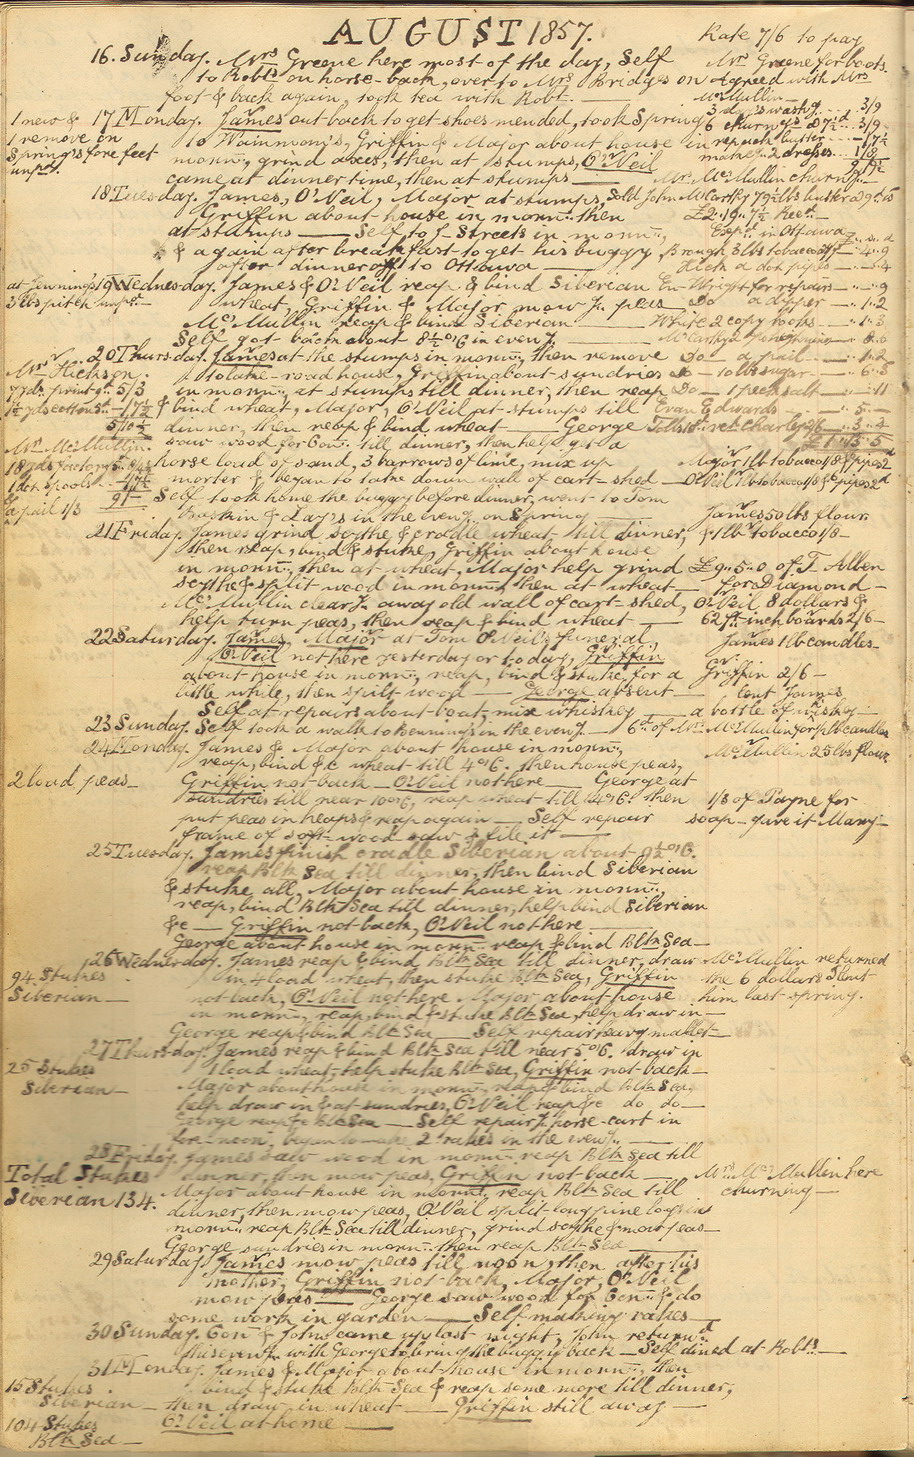 AUGUST 1857.
Rate 7/6 to pay
16. Sunday. Mrs Greene here most of the day, Self
Mrs Greene for boots.
to Robts on horse-back, over to Mrs Bridges on
Agreed with Mrs
foot & back again, took tea with Robt. —
McMullin —
3 days washg. .. 3/9
1 new &
17 Monday. James out back to get shoes mended, took Spring
6 churngs @ 7½d .. 3/9
1 remove on
to Wainmon's, Griffin & Major about house in
repack butter — 1/7½
Spring's fore feet
mornn:, grind axes, then at stumps, O'Neil
make 2 dresses. 1/8
unpd.
came at dinner time, then at stumps —
Mrs McMullin churng. —
18 Tuesday. James, O'Neil, Major at stumps,
Sold John McCarthy 79½ lbs butter @ 9d is
Griffin about house in mornn: then
£2.. 19.. 7½ Recd. —
at stumps — Self to J. Streets in mornn:,
Expd. in Ottawa £.. s.. d
& again after breakfast to get his buggy
Brough 3 lbs tobacco — 4.. 9
after dinner off to Ottawa —
Hick a doz pipes — 4
at Jennings
19 Wednesday. James & O'Neil reap & bind Siberian
Wright for repairs — 9
3 lbs pitch unpd. —
wheat, Griffin & Major mow Jn. peas
Do — a dipper — 1.. 2
McMullin reap & bind Siberian —
White 2 copy books — 1.. 3
Self got back about 8½ o'C in eveng. —
20 Thursday. James at the stumps in mornn:, then remove
Do — a pail — 1.. 2
Mrs Hickson.
road house, Griffin about sundries
Do — 10 lbs sugar — 6.. 8
7 yds. print 9d. 5/3
in mornn:, at stumps till dinner, then reap
Do — 1 peck salt — 11
1½ yds cotton 5d. — /7½
& bind wheat, Major, O'Neil at stumps till
Evan Edwards — 5 —
5/10½
dinner, then reap & bind wheat — George
Mrs McMullin.
saw wood for Conn: till dinner, then help get a
18 yds factory
horse load of sand, 3 barrows of lime, mix up
Major 1 lb tobacco 1/8 & pipes 2d
1 doz spools
morter & began to take down wall of cart-shed —
O'Neil 1 lb tobacco 1/8 & pipes 2d
a pail 1/3
Self took home the buggy before dinner, went to Tom
Baskin & Lay's in the eveng. on Spring —
James 50 lbs flour
21 Friday. James grind scythe & cradle wheat till dinner,
& 1 lb tobacco 1/8 —
then reap, bind & stuke, Griffin about house
in mornn:, then at wheat, Major help grind
£9.. 5.. 0 of T. Allen
scythe & split wood in mornn:, then at wheat —
for Diamond —
McMullin clearg. away old wall of cart-shed,
O'Neil 8 dollars &
help turn peas, then reap & bind wheat —
62 ft. inch boards 2/6 —
22 Saturday. James, Major at Tom O'Neil's funeral,
James 1 lb candles —
O'Neil not here yesterday or to-day, Griffin
about house in mornn:, reap, bind & stuke for a
Griffin 2/6 —
little while, then split wood — George absent —
lent James
Self at repairs about boat, mix whiskey —
a bottle of whiskey —
23 Sunday. Self took a walk to Bennings in the eveng. —
6d. of Mrs McMullin for 1 lb candles
24 Monday. James & Major about house in mornn:,
McMullin 25 lbs flour.
reap, bind &c wheat till 4 o'C. then house peas,
2 load peas —
Griffin not back — O'Neil not here — George at
sundries till near 10 o'C, reap wheat till 4 o'C. then
1/3 of Payne for
put peas in heaps & reap again — Self repair
soap — gave it Mary —
frame of soft-wood saw & file it —
25 Tuesday. James finish cradle Siberian about 9½ o'C.
reap Blk Sea till dinner, then bind Siberian
& stuke all, Major about house in mornn:,
reap, bind Blk Sea till dinner, help bind Siberian
&c — Griffin not back, O'Neil not here —
George about house in mornn: reap & bind Blk Sea —
26 Wednesday. James reap & bind Blk Sea till dinner, draw
McMullin returned
94 Stukes
in 4 load wheat, then stuke Blk Sea, Griffin
the 6 dollars I lent
Siberian —
not back, O'Neil not here Major about house
him last spring.
in mornn:, reap, bind & stuke Blk Sea, help draw in —
George reap & bind Blk Sea — Self repair heavy mallet —
27 Thursday. James reap & bind Blk Sea till near 5 o'C. draw in
25 Stukes
1 load wheat, help stuke Blk Sea, Griffin not back —
Siberian —
Major about house in mornn: reap & bind Blk Sea,
help draw in & at sundries, O'Neil reap &c do do —
George reap &c Blk Sea — Self repairg. horse-cart in
fore-noon, began to make 2 rakes in the eveng. —
28 Friday. James saw wood in mornn: reap Blk Sea till
Total Stukes
dinner, then mow peas, Griffin not back —
Mrs McMullin here
Siverian 134.
Major about house in mornn:, reap Blk Sea till
churning —
dinner, then mow peas, O'Neil split long pine logs in
mornn: reap Blk Sea till dinner, grind scythe & mow peas —
George sundries in mornn: then reap Blk Sea —
29 Saturday. James mow peas till noon, then after his
mother, Griffin not back, Major, O'Neil
mow peas — George saw wood for Conn: & do
some work in garden — Self making rakes —
30 Sunday. Conn & John came up last night, John returnd.
this eveng. with George to bring the buggy back — Self dined at Robts. —
31 Monday. James & Major about house in mornn:, then
15 Stukes
bind & stuke Blk Sea & reap some more till dinner,
Siberian —
then draw in wheat — Griffin still away —
104 Stukes
O'Neil at home —
Blk Sea —